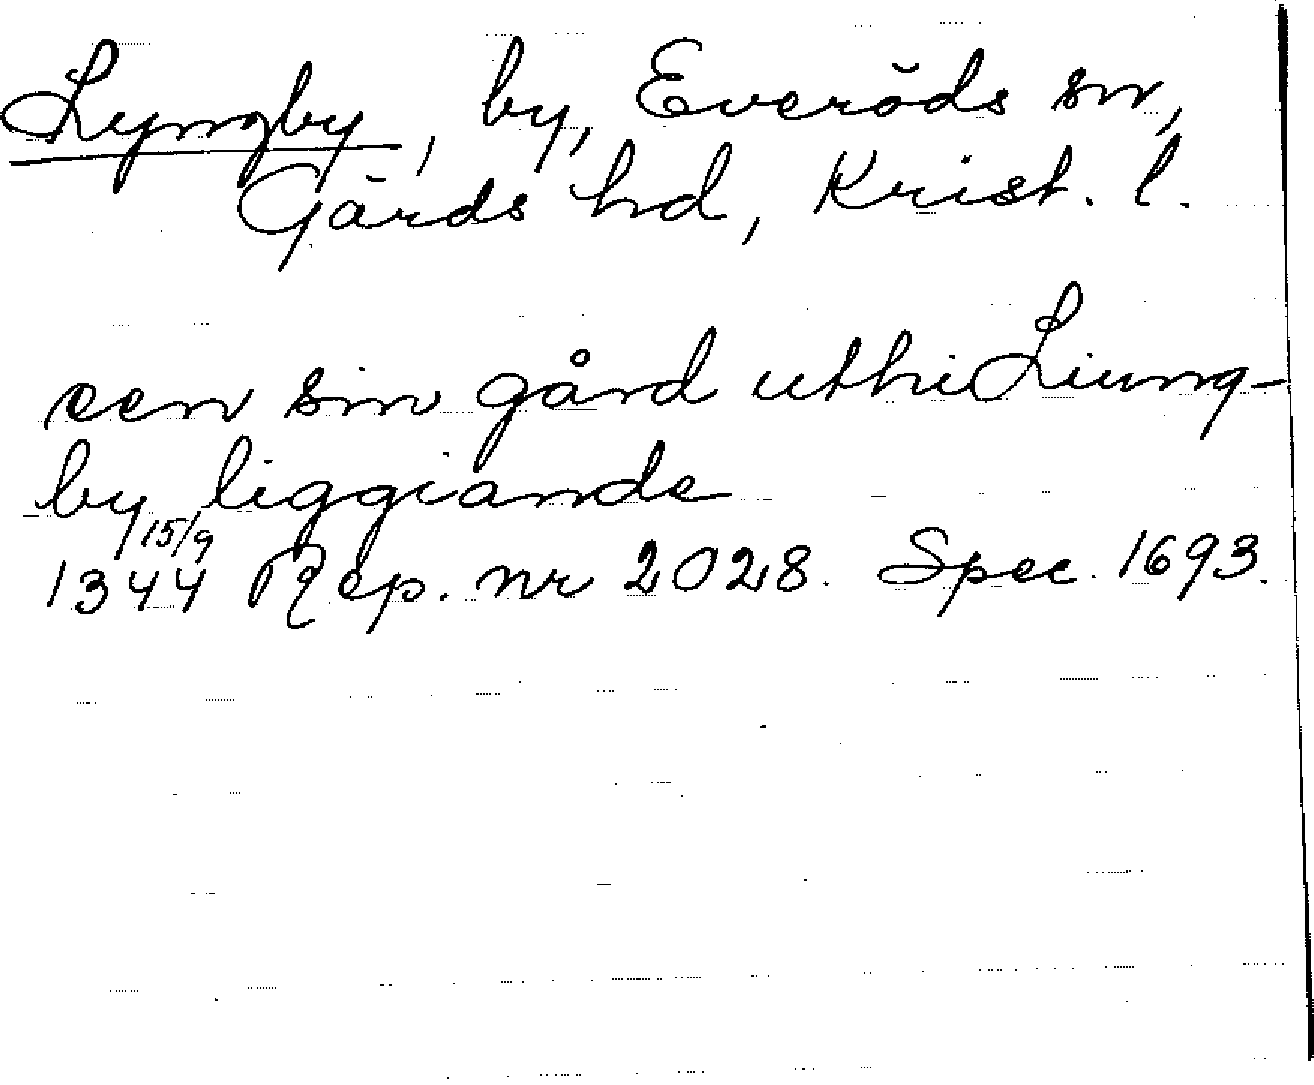 Lyngby, by, Everöds sn,
Gärds hd, Krist. l.
een sin gård uthi Liung-
by liggiande
15/9
1344 Rep. nr 2028. Spec. 1693.